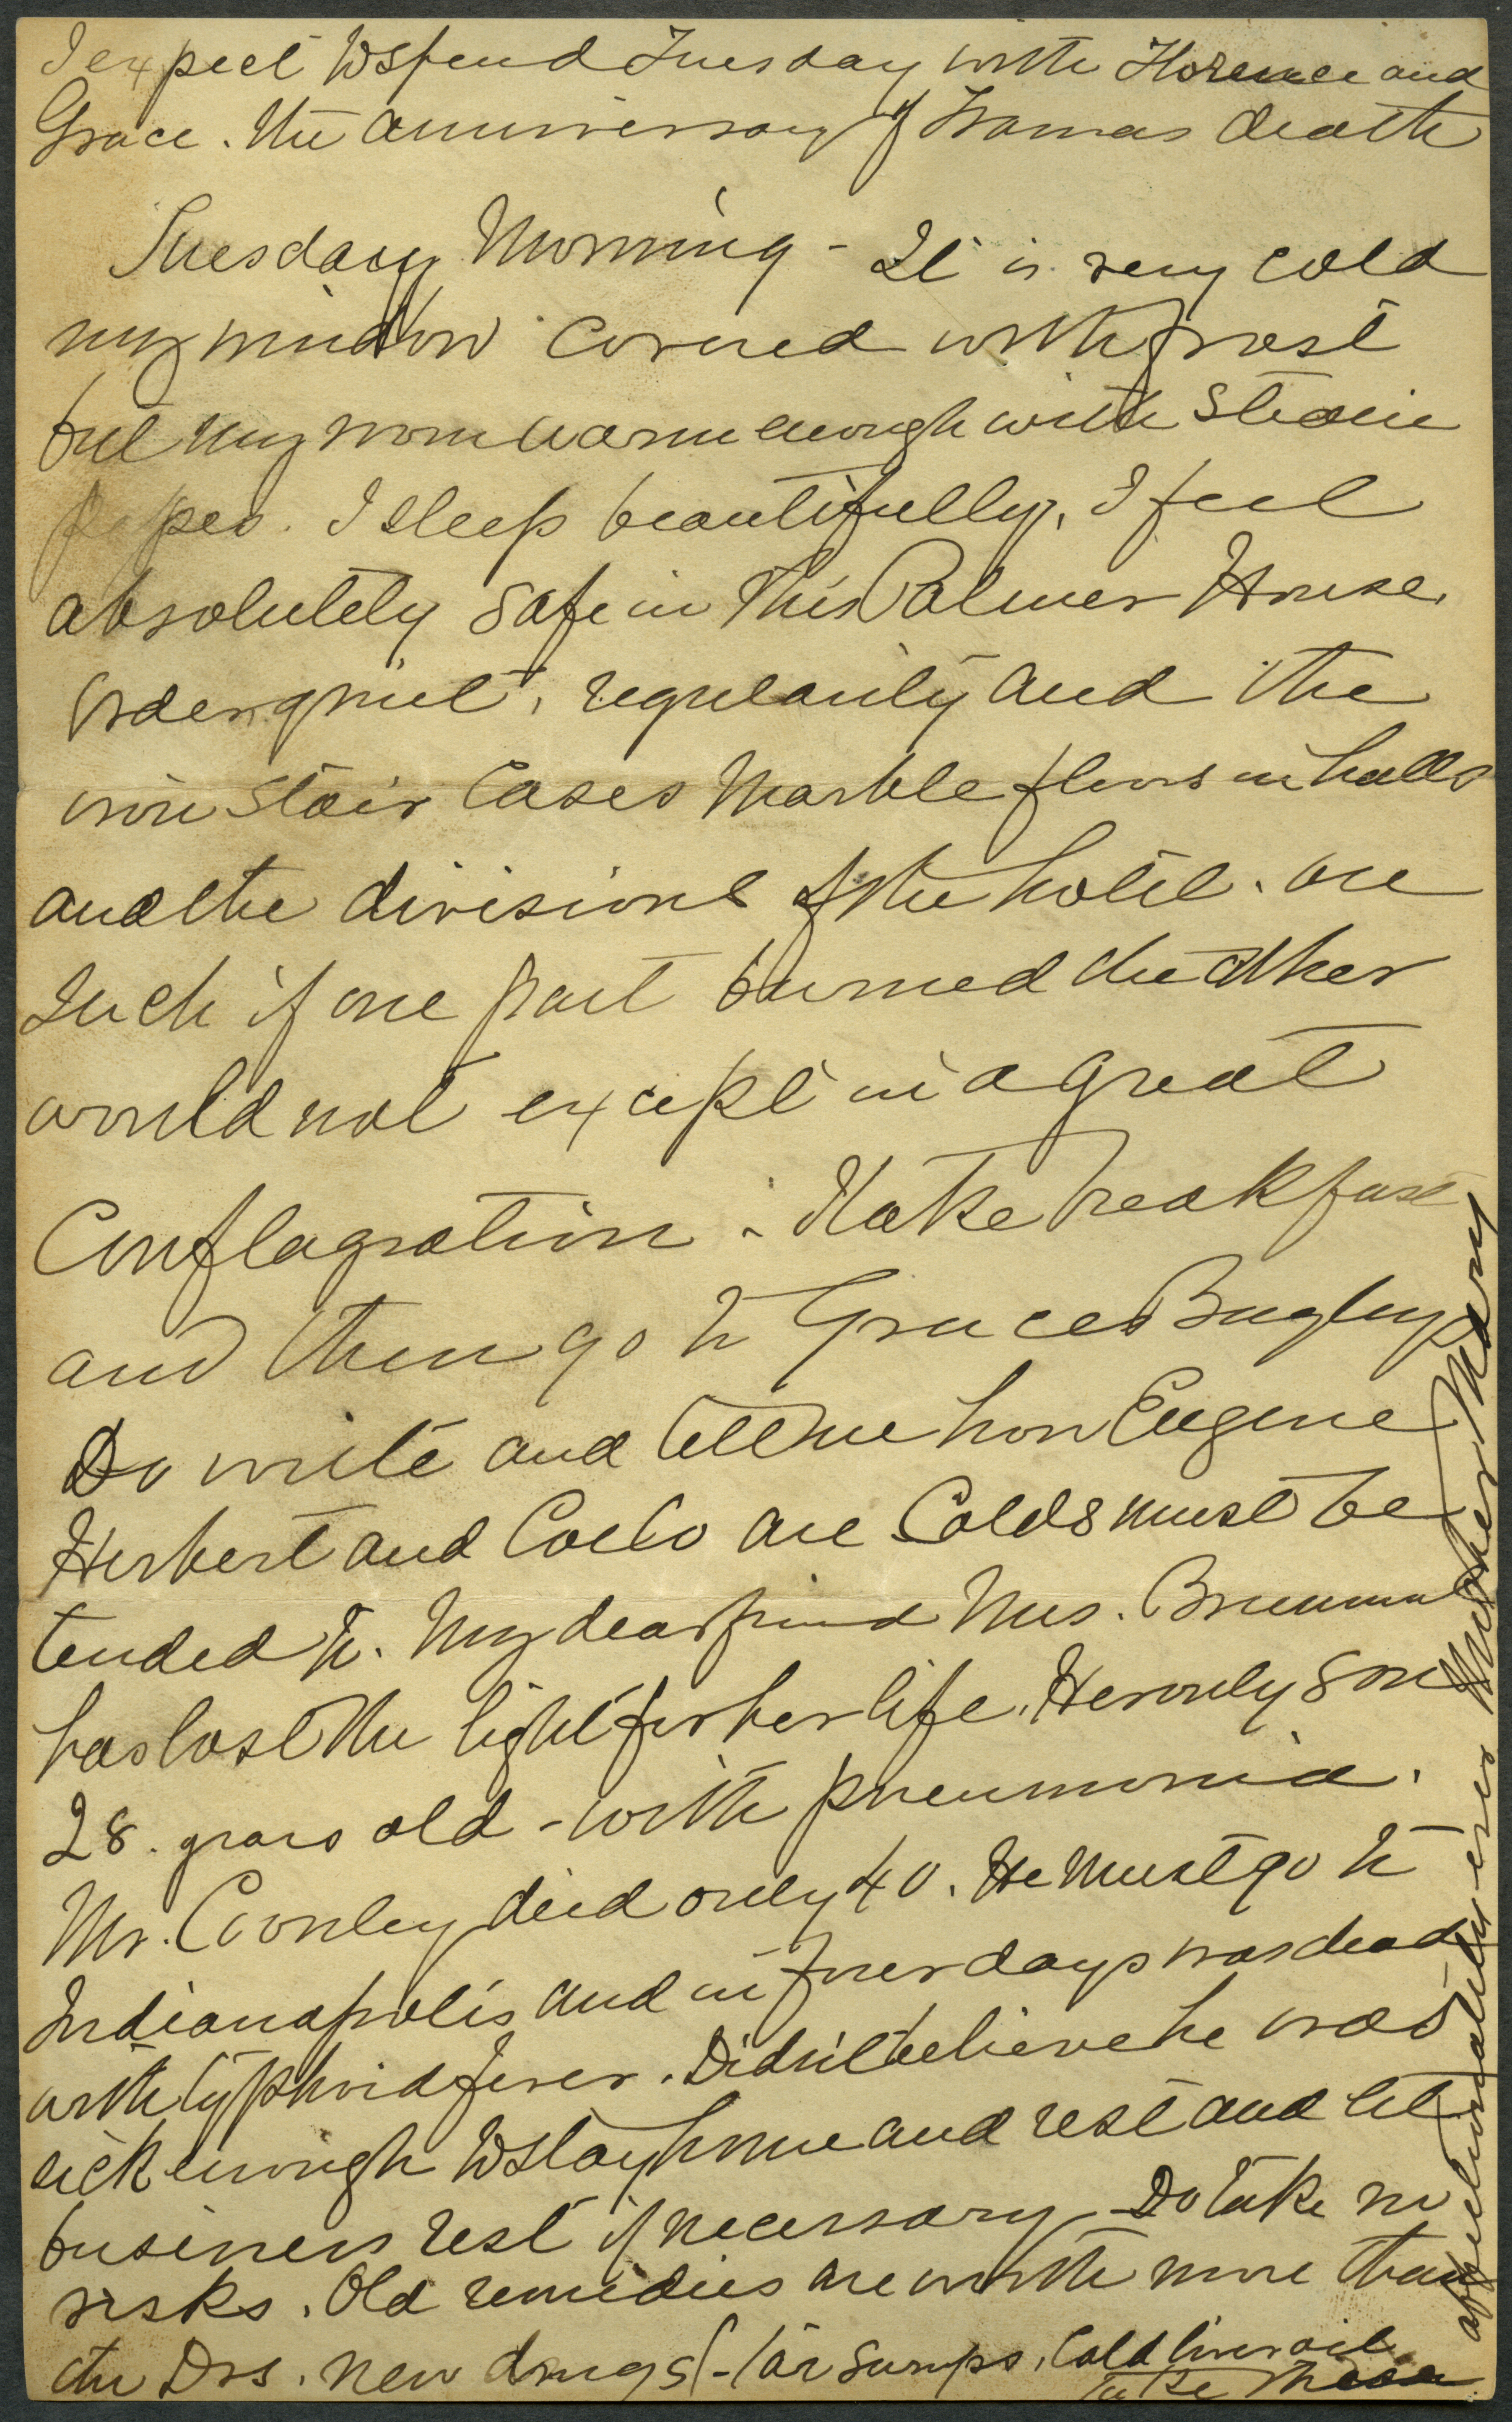 I expect to spend Tuesday with Florence and
Grace. the anniversary of Mamas death
Tuesday Morning - It is very cold
my window covered with frost
but my room warm enough with steam
pipes. I sleep beautifully. I feel
absolutely safe in this Palmer House.
Order, quiet, regularity and the
iron stair cases Marble floors in halls
and the divisions of the hotel. are
such if one part burned the other
would not except in a great
Conflagration - I take breakfast
and then go to Graces Bagleys
Do write and tell me how Eugene
Herbert and CoeCo are Colds must be
tended to. My dear friend Mrs.
has lost the light for her life. Her only son
28. years old - with pneumonia.
Mr. Coonley died only 40. He must go to
Indianapolis and in four days was dead
with typhoid fever. Didn't believe he was
sick enough to stay home and rest and let
business rest if necessary - Do take no
risks. Old remedies are worth more than
the Drs. new drugs (- Tar Syrups, Cold liver oil
take these
affectionately ever Mother Mary